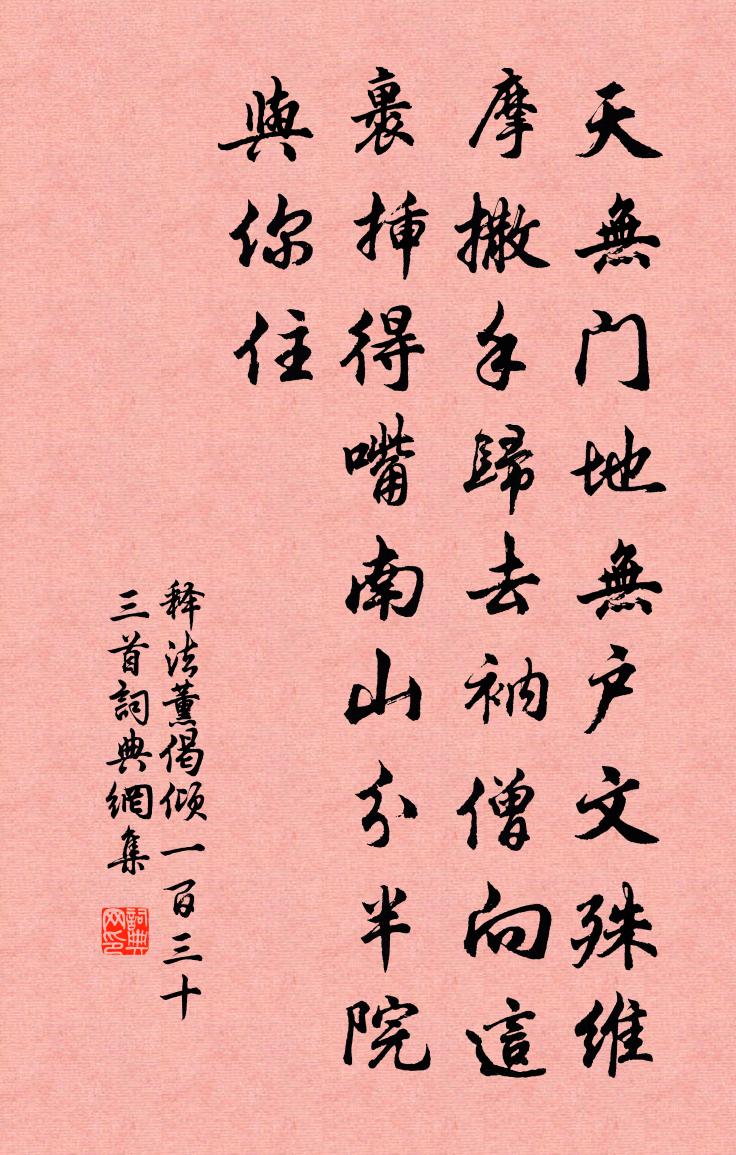 天無门地無户文殊維
摩撒手歸去衲僧向這
裏挿得嘴南山分半院
與你住
释法薰偈倾一百三十
三首詞典網集
詞典网印